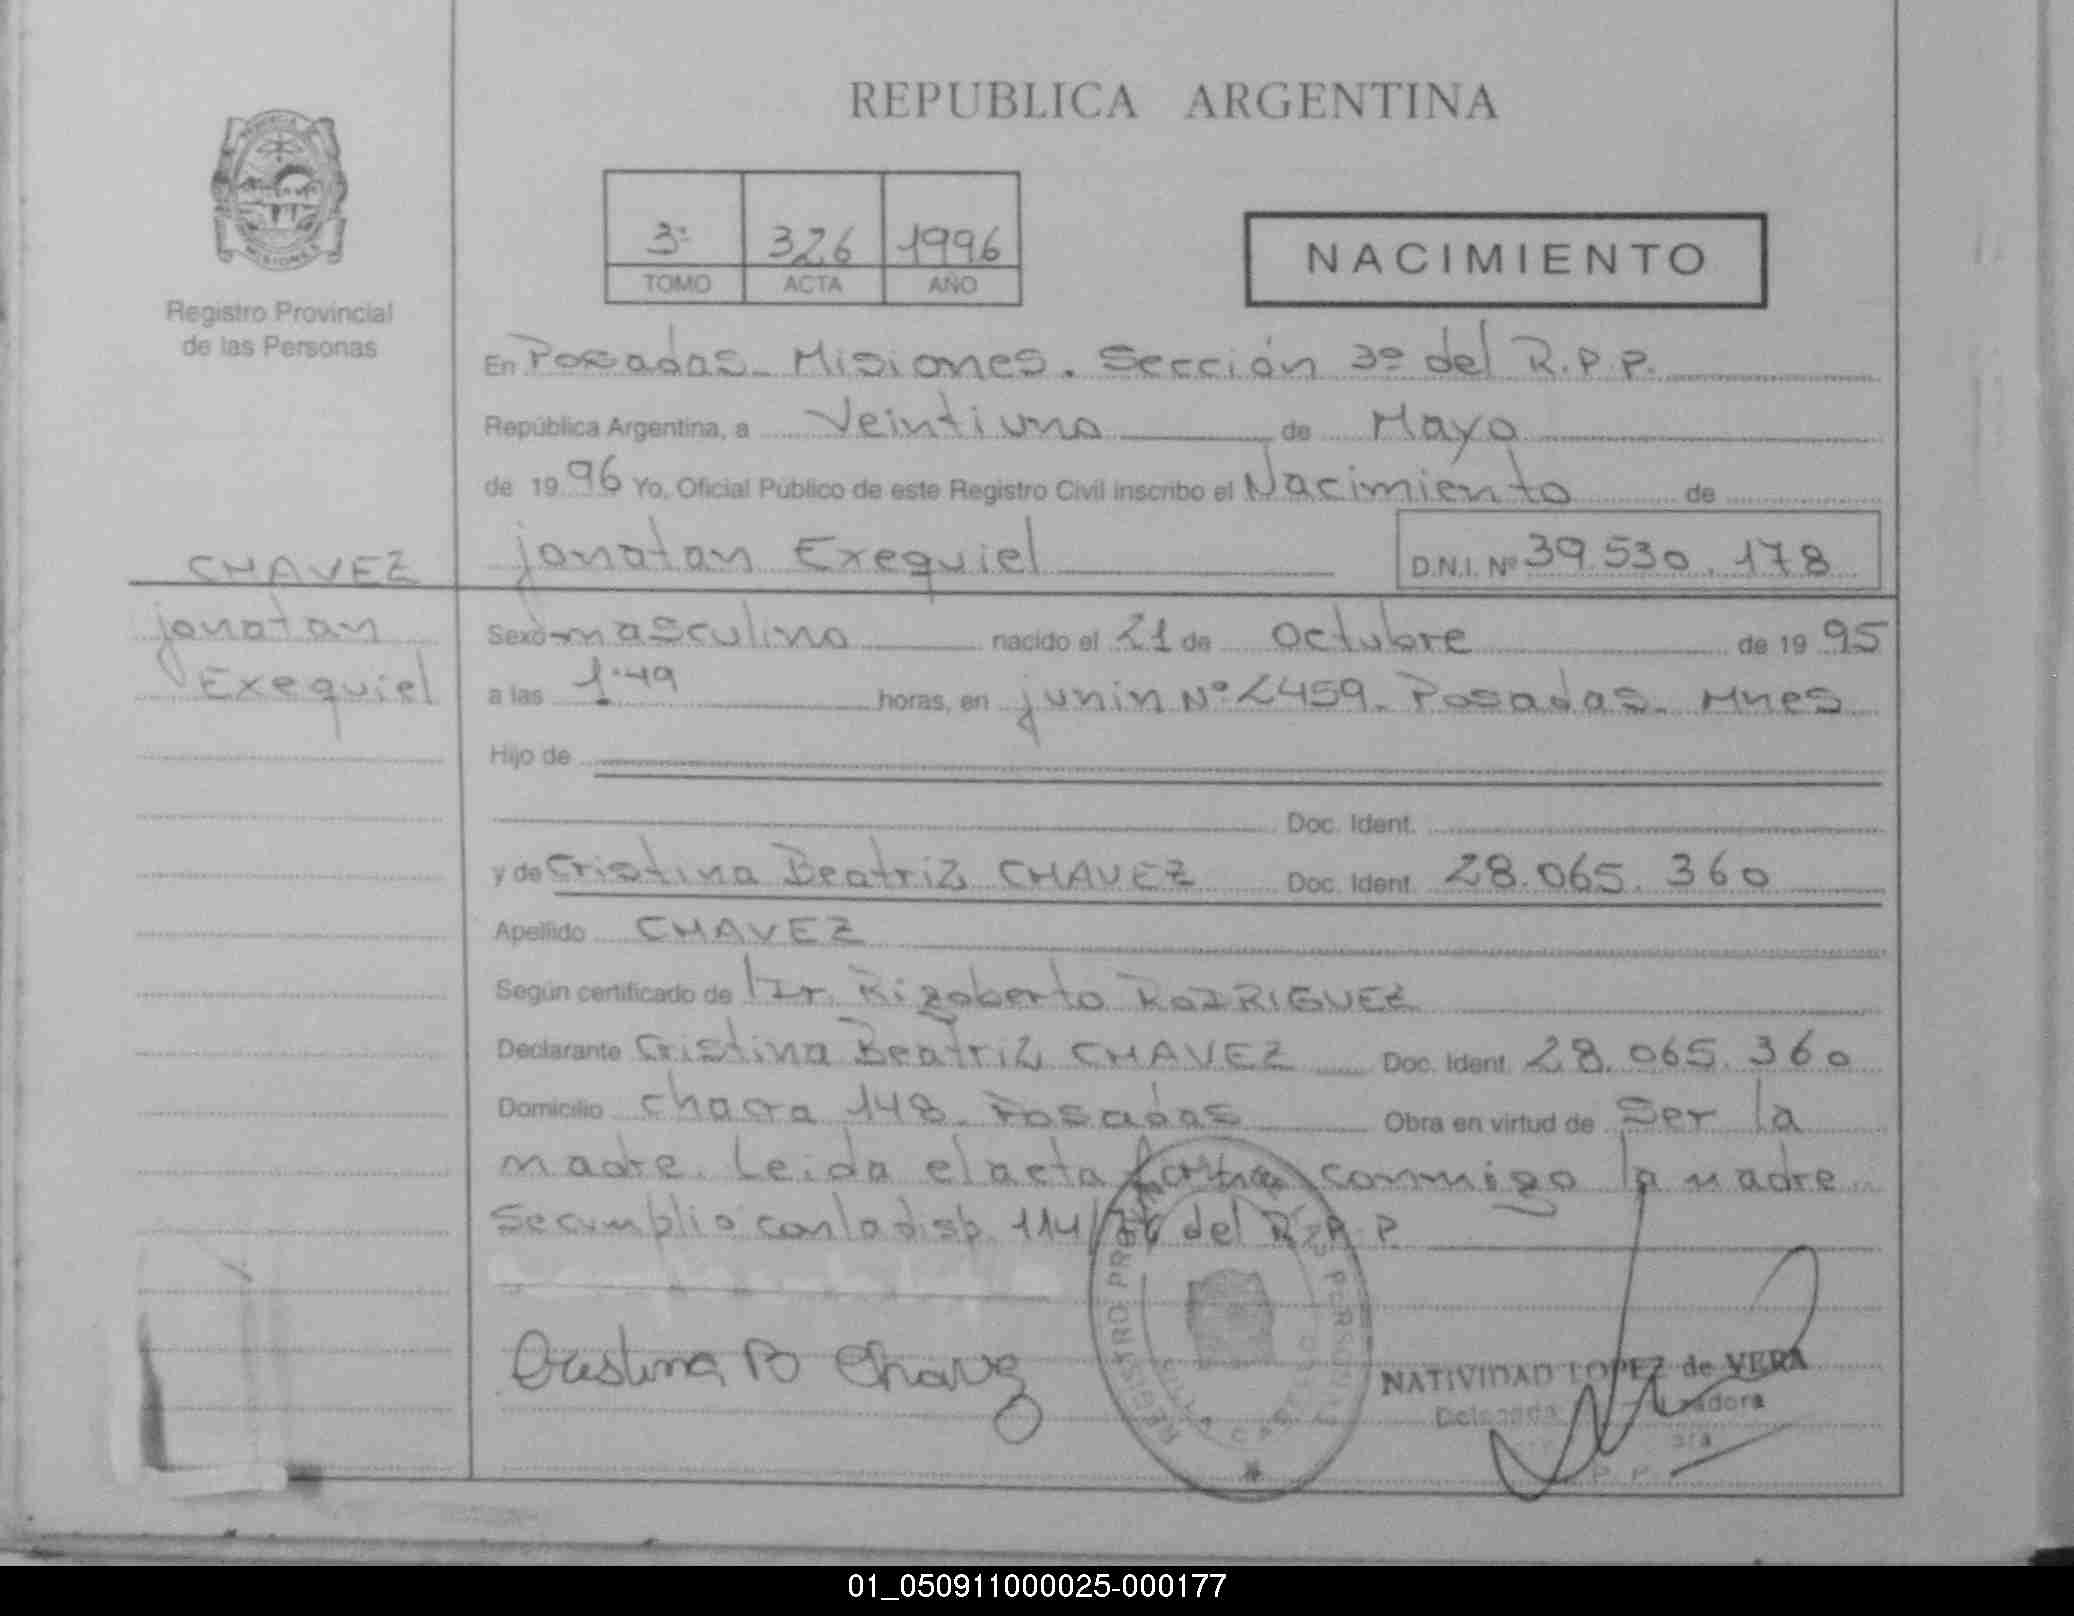 REPUBLICA ARGENTINA
Registro Provincial
de las Personas
3º 326 1996
TOMO ACTA AÑO
NACIMIENTO
En Posadas - Misiones. Sección 3º del R.P.P.
República Argentina, a Veintiuno de Mayo
de 19 96 Yo, Oficial Público de este Registro Civil inscribo el Nacimiento de
CHAVEZ
jonatan Exequiel D.N.I. Nº 39.530.178
jonatan
Exequiel
Sexo masculino nacido el 21 de Octubre de 19 95
a las 1.49 horas, en junin Nº 2459. Posadas - Mnes
Hijo de
Doc. Ident.
y de Cristina Beatriz CHAVEZ Doc. Ident. 28.065.360
Apellido CHAVEZ
Según certificado de Dr. Rigoberto RODRIGUEZ
Declarante Cristina Beatriz CHAVEZ Doc. Ident. 28.065.360
Domicilio chacra 148 - Posadas Obra en virtud de Ser la
madre. Leida el acta conmigo la madre
Se cumplio con la disp. 114/ del R.P.P.
Cristina B Chavez
REGISTRO PERSONAS
NATIVIDAD LOPEZ de VERA
Delegada
01_050911000025-000177